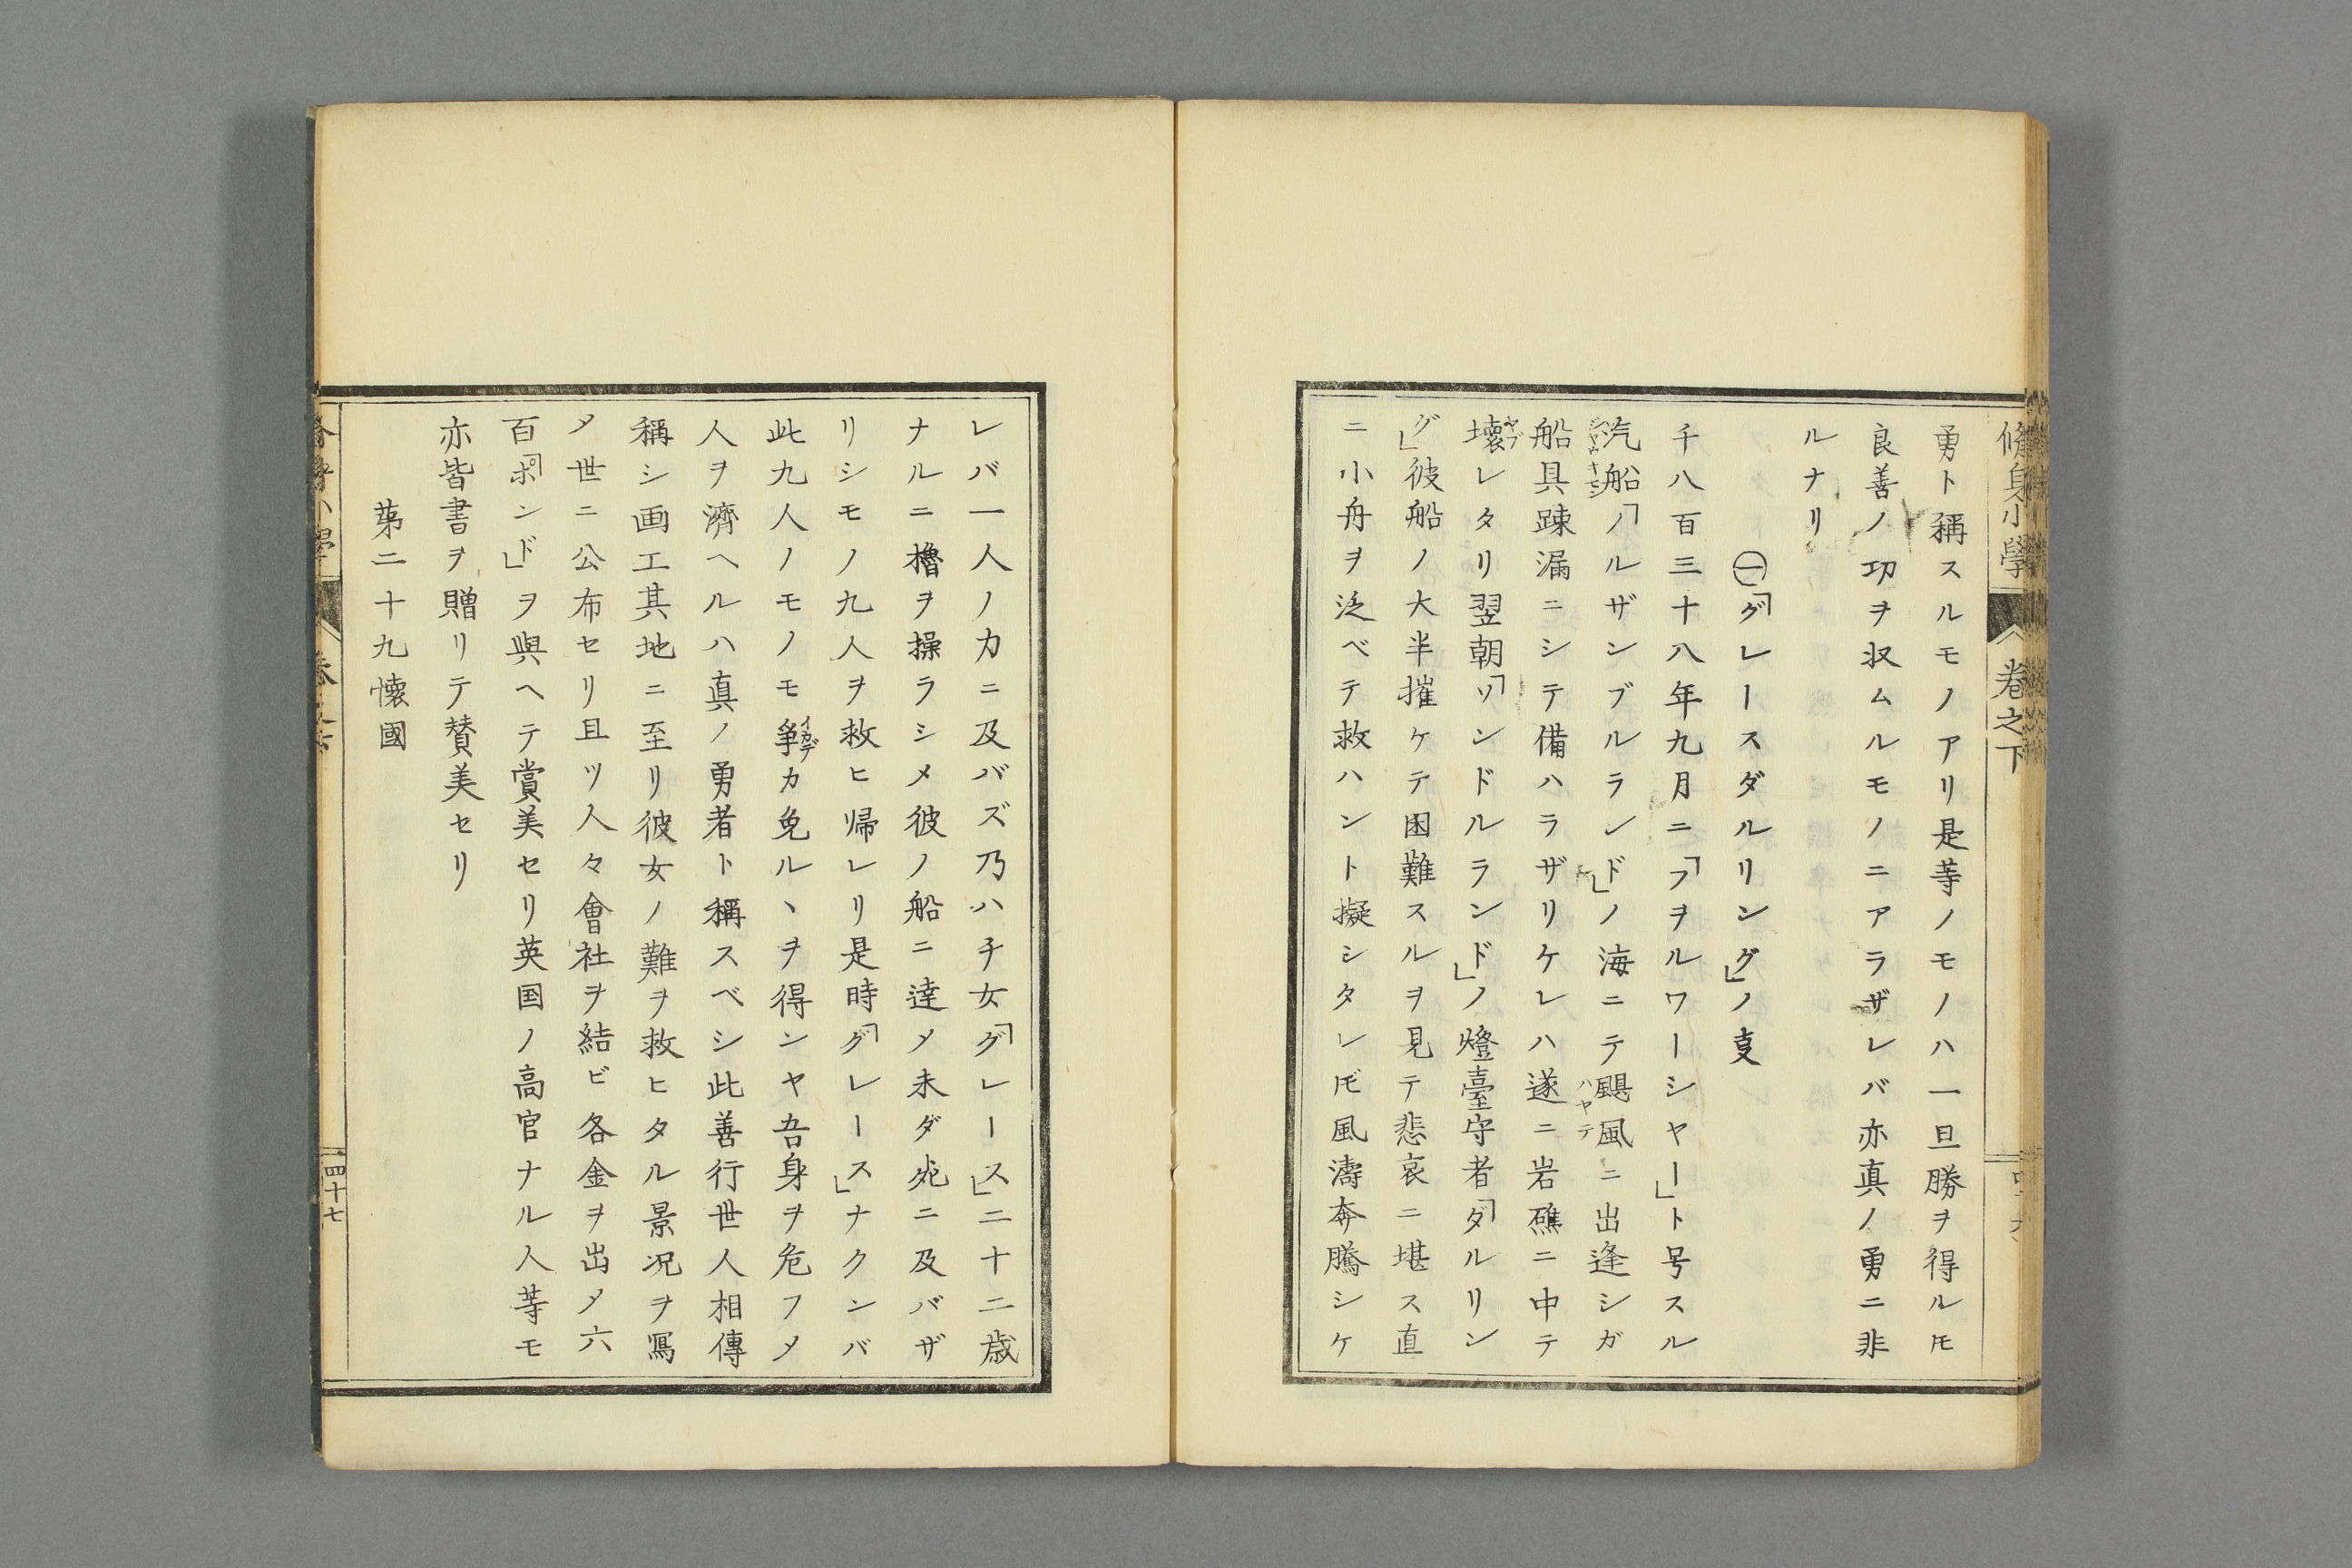 脩身小學 卷之下
勇ト稱スルモノアリ是䓁ノモノハ一旦勝ヲ得ル𪜈
良善ノ功ヲ収ムルモノニアラザレバ亦真ノ勇ニ非
ルナリ
㊀「グレースダルリング」ノ㕝
千八百三十八年九月ニ「フヲルワーシヤー」ト号スル
汽船「ノルザンブルランド」ノ海ニテ颶風ニ出逢シガ
ジヤウキセン
ハヤテ
船具踈漏ニシテ備ハラザリケレハ遂ニ岩礁ニ中テ
壞レタリ翌朝「ソンドルランド」ノ燈臺守者「ダルリン
ヤブ
グ」彼船ノ大半摧ケテ困難スルヲ見テ悲哀ニ堪ス直
ニ小舟ヲ泛ベテ救ハント擬シタレ𪜈風濤奔騰シケ
レバ一人ノ力ニ及バズ乃ハチ女「グレース」二十二歳
ナルニ櫓ヲ操ラシメ彼ノ船ニ達メ未ダ死ニ及バザ
リシモノ九人ヲ救ヒ帰レリ是時「グレース」ナクンバ
此九人ノモノモ争カ免ルヽヲ得ンヤ吾身ヲ危フメ
イカデ
人ヲ濟ヘルハ真ノ勇者ト稱スベシ此善行世人相傳
稱シ画工其地ニ至リ彼女ノ難ヲ救ヒタル景况ヲ寫
メ世ニ公布セリ且ツ人々會社ヲ結ビ各金ヲ出メ六
百「ポンド」ヲ與ヘテ賞美セリ英国ノ高官ナル人䓁モ
亦皆書ヲ贈リテ賛美セリ
苐二十九懷國
四十七